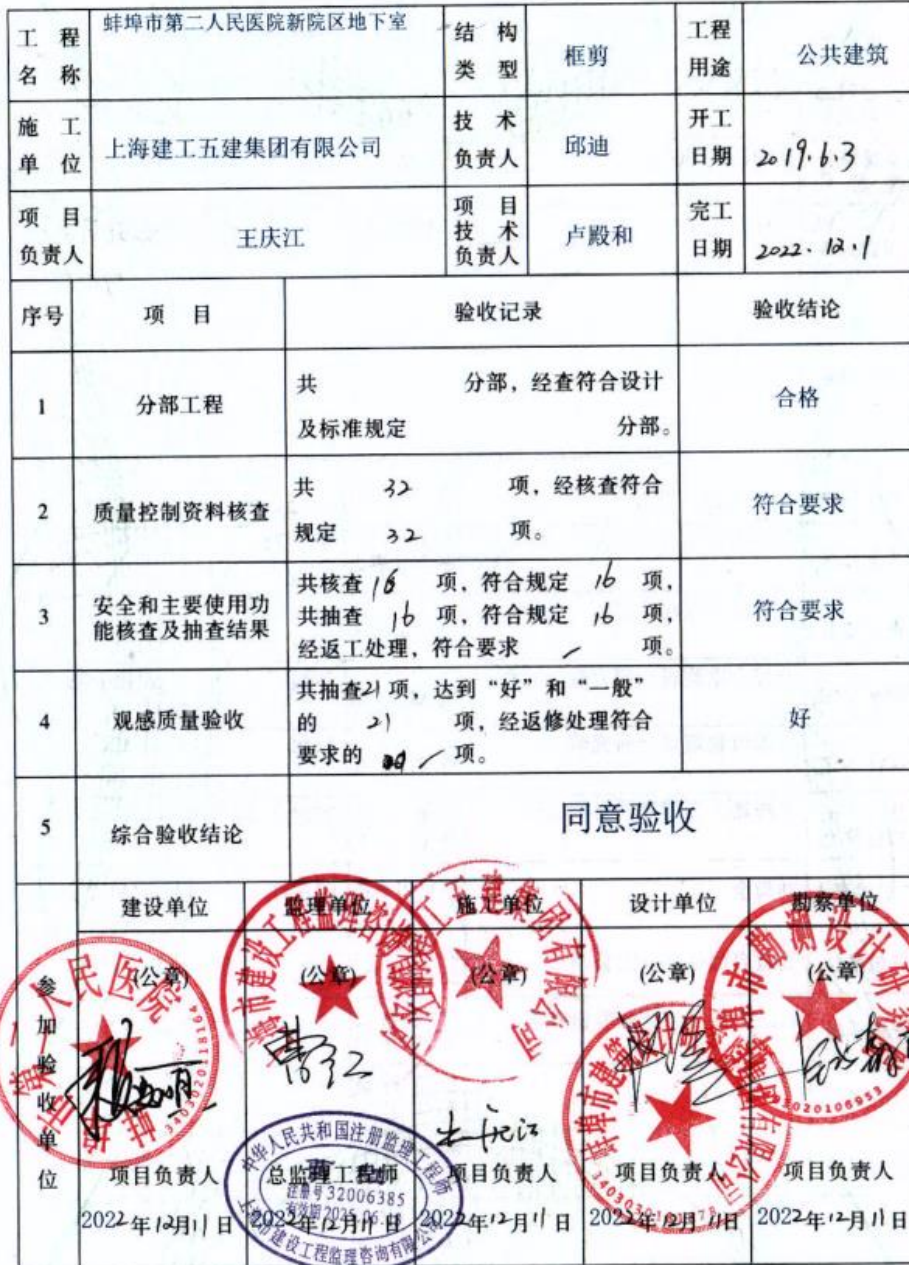 工程名称 蚌埠市第二人民医院新院区地下室 结构类型 框剪 工程用途 公共建筑
施工单位 上海建工五建集团有限公司 技术负责人 邱迪 开工日期 2019.6.3
项目负责人 王庆江 项目技术负责人 卢殿和 完工日期 2022.12.1
序号 项目 验收记录 验收结论
1 分部工程 共 分部，经查符合设计
及标准规定 分部。 合格
2 质量控制资料核查 共 32 项，经核查符合
规定 32 项。 符合要求
3 安全和主要使用功
能核查及抽查结果 共核查 16 项，符合规定 16 项，
共抽查 16 项，符合规定 16 项，
经返工处理，符合要求 / 项。 符合要求
4 观感质量验收 共抽查21项，达到“好”和“一般”
的 21 项，经返修处理符合
要求的 / 项。 好
5 综合验收结论 同意验收
参加验收单位
建设单位 监理单位 施工单位 设计单位 勘察单位
(公章) (公章) (公章) (公章) (公章)
中华人民共和国注册监理工程师
注册号32006385
项目负责人 总监理工程师 项目负责人 项目负责人 项目负责人
2022年12月11日 2022年12月11日 2022年12月11日 2022年12月11日 2022年12月11日